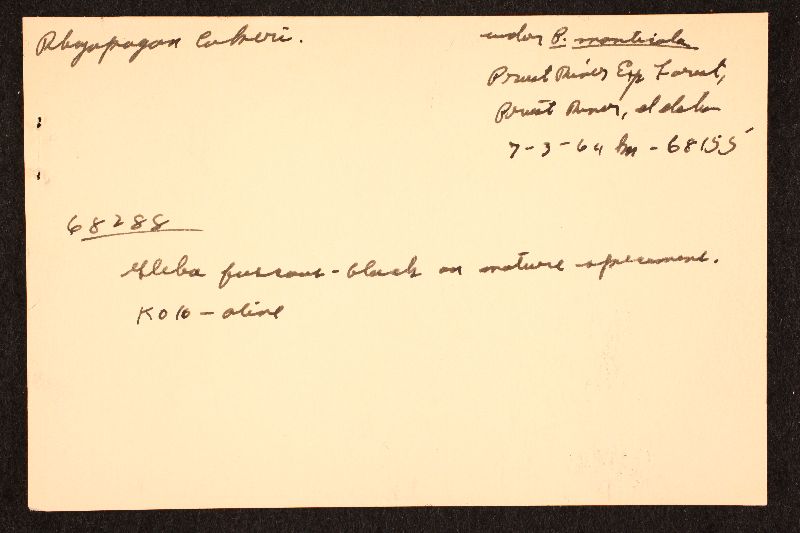 Rhizopogon cokeri.
under P. monticola
Priest River Exp Forest,
Priest River, Idaho
7-3-64 Sm - 68155
68288
Gleba fuscous-black on mature specimens.
KOH - olive